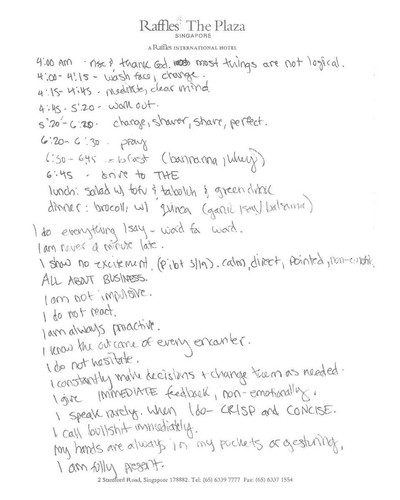 Raffles The Plaza
SINGAPORE
A Raffles INTERNATIONAL HOTEL
4:00 AM - rise & thank God. most things are not logical.
4:00 - 4:15 - wash face, change.
4:15 - 4:45 - meditate, clear mind
4:45 - 5:20 - work out.
5:20 - 6:20 - change, shower, shave, perfect.
6:20 - 6:30 - pray
6:30 - 6:45 - (bannanna, whey)
6:45 - drive to THE
lunch: salad w/ tofu & & green drink
dinner: brocoli w/ quinoa (garlic /soy/balsamic)
I do everything I say - word for word.
I am never a minute late.
I show no excitement. calm, direct, pointed,
ALL ABOUT BUSINESS.
I am not impulsive.
I do not react.
I am always proactive.
I know the outcome of every encounter.
I do not hesitate.
I constantly make decisions & change them as needed.
I give IMMEDIATE feedback, non-emotionally.
I speak rarely. When I do - CRISP and CONCISE.
I call bullshit immediately.
My hands are always in my pockets or gesturing.
I am fully present.
2 Stamford Road, Singapore 178882. Tel: (65) 6339 7777 Fax: (65) 6337 1554